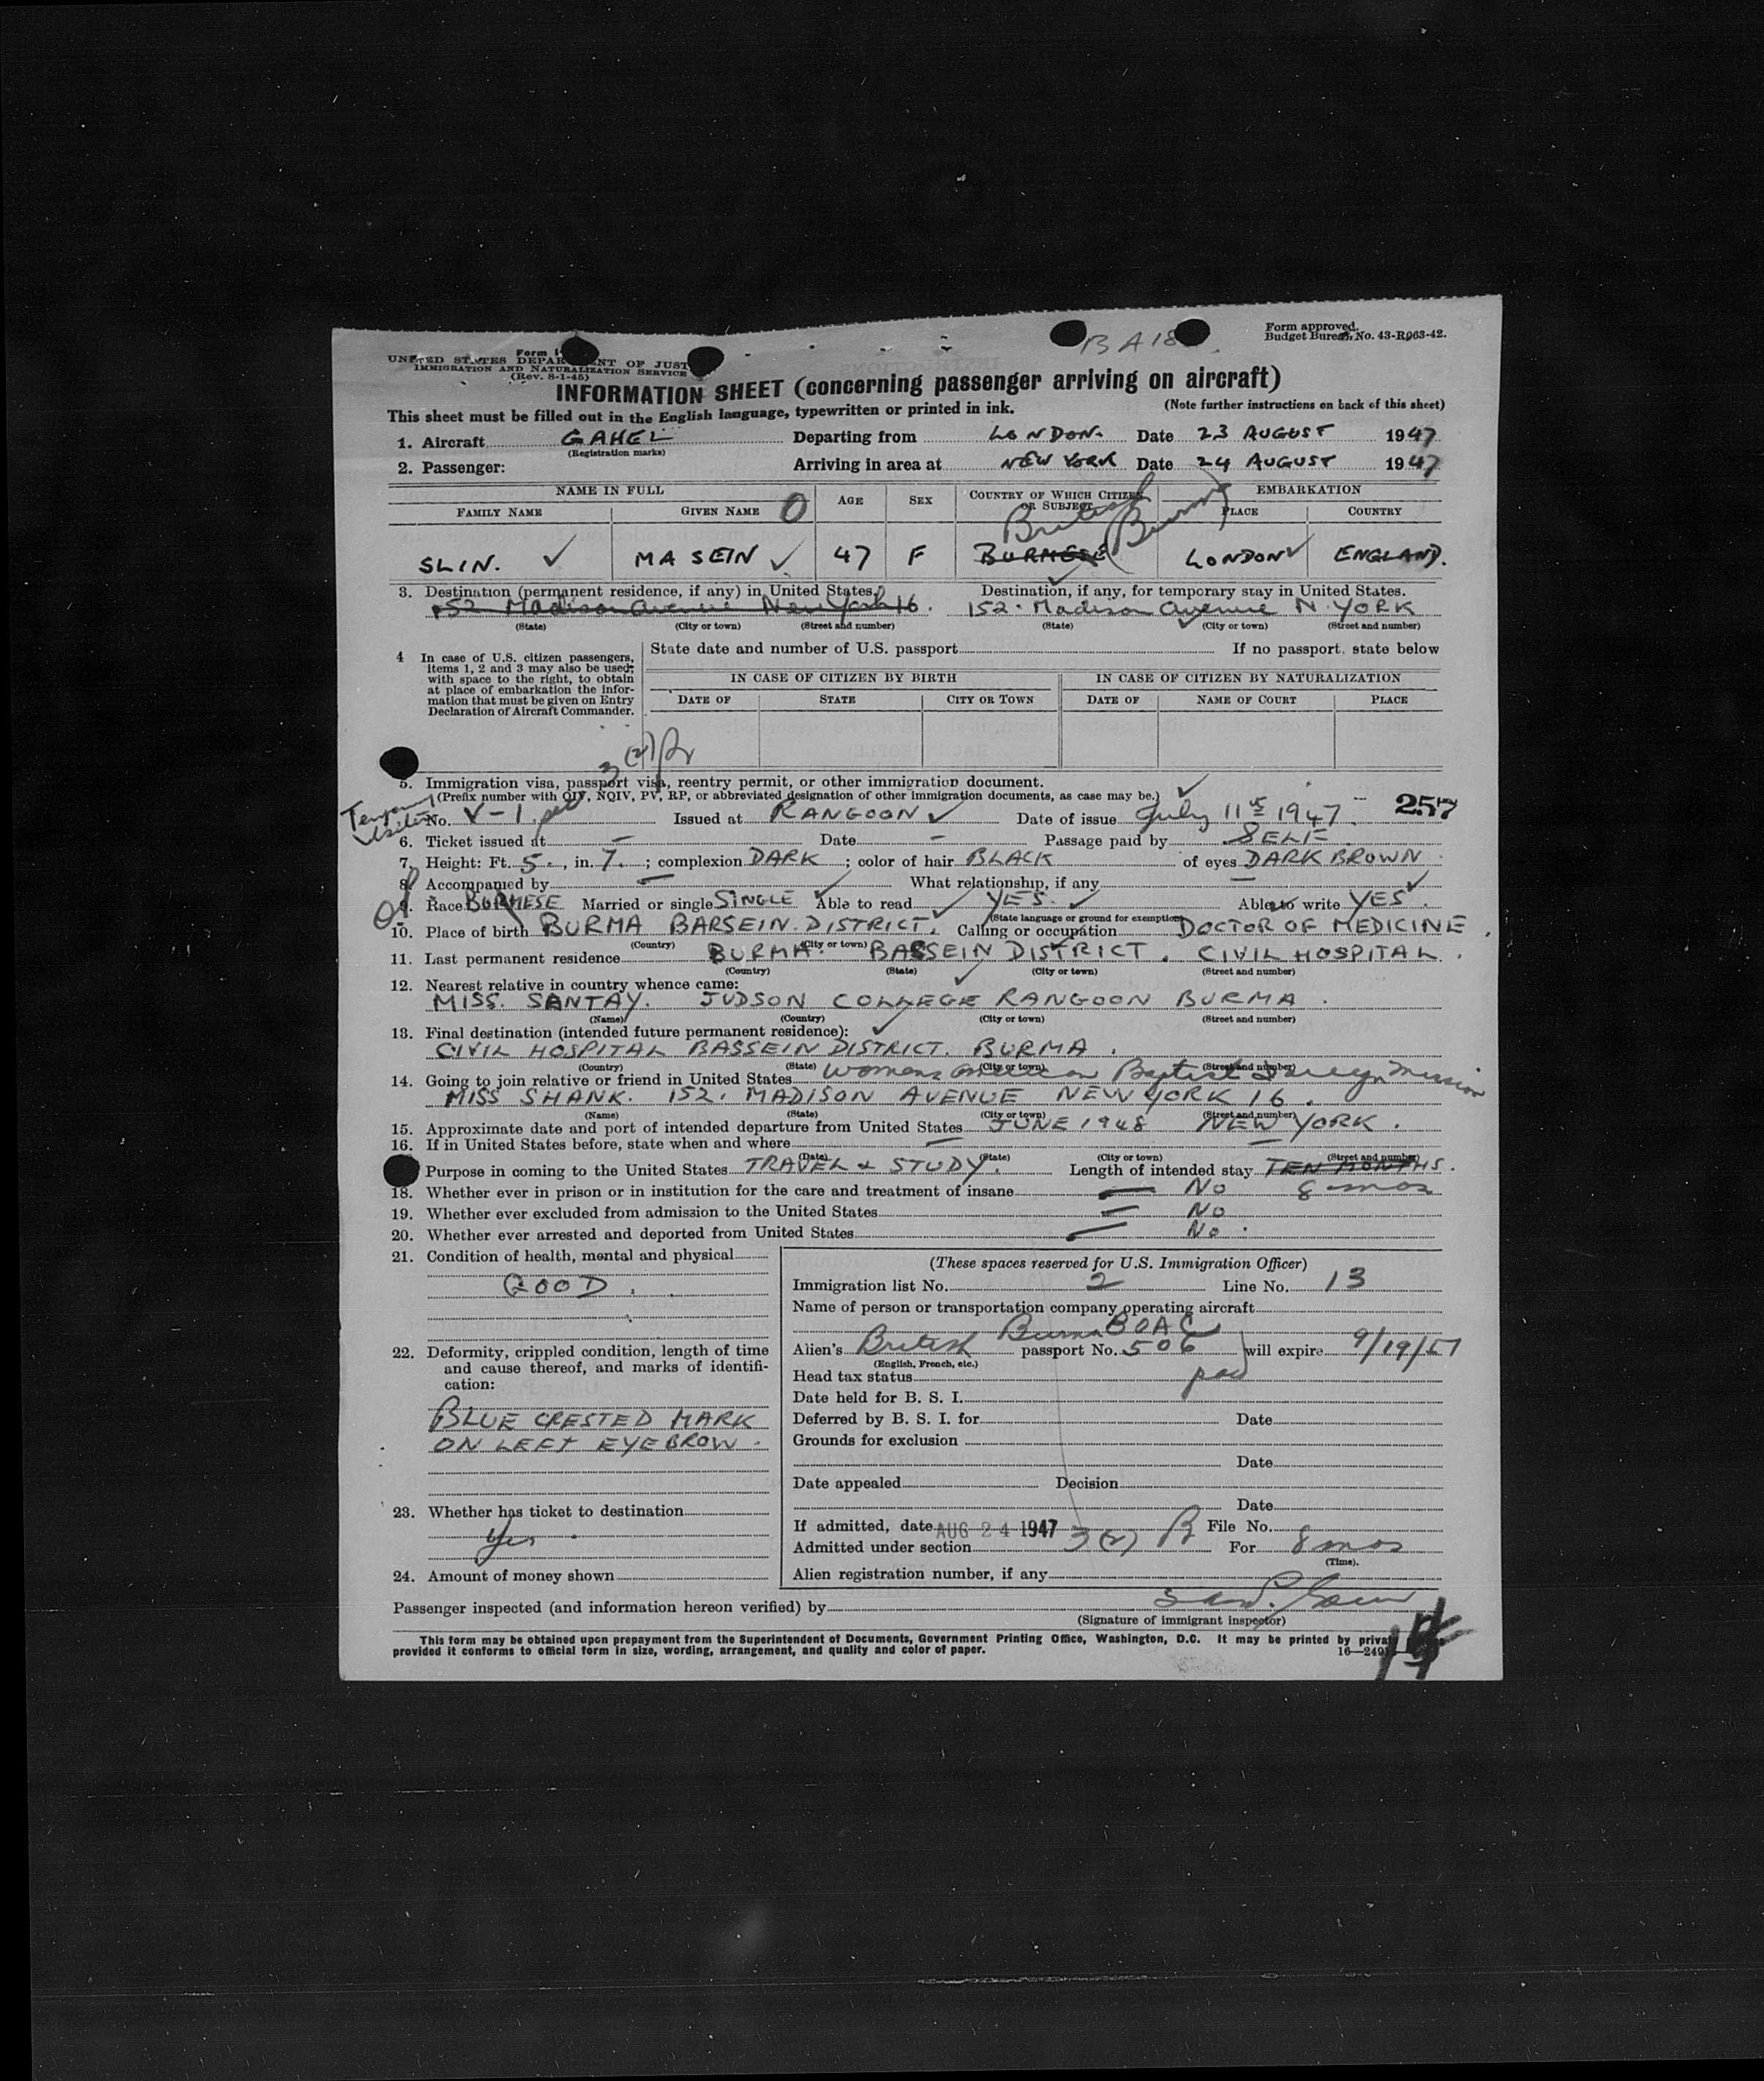 BA18
Form approved.
Budget Bureau No. 43-R063-42.
UNITED STATES DEPARTMENT OF JUST
IMMIGRATION AND NATURALIZATION SERVICE
(Rev. 8-1-45)
INFORMATION SHEET (concerning passenger arriving on aircraft)
This sheet must be filled out in the English language, typewritten or printed in ink. (Note further instructions on back of this sheet)
1. Aircraft GAHEL Departing from LONDON. Date 23 AUGUST 1947
(Registration marks)
2. Passenger: Arriving in area at NEW YORK Date 24 AUGUST 1947
NAME IN FULL AGE SEX COUNTRY OF WHICH CITIZEN OR SUBJECT EMBARKATION
FAMILY NAME GIVEN NAME O PLACE COUNTRY
British (Burma)
SLIN. MA SEIN 47 F BURMESE LONDON ENGLAND.
3. Destination (permanent residence, if any) in United States. Destination, if any, for temporary stay in United States.
152 Madison Avenue New York 16. 152. Madison Avenue N. YORK
(State) (City or town) (Street and number) (State) (City or town) (Street and number)
4 In case of U.S. citizen passengers, items 1, 2 and 3 may also be used; with space to the right, to obtain at place of embarkation the information that must be given on Entry Declaration of Aircraft Commander.
State date and number of U.S. passport If no passport, state below
IN CASE OF CITIZEN BY BIRTH IN CASE OF CITIZEN BY NATURALIZATION
DATE OF STATE CITY OR TOWN DATE OF NAME OF COURT PLACE
3(2)
5. Immigration visa, passport visa, reentry permit, or other immigration document.
(Prefix number with QIV, NQIV, PV, RP, or abbreviated designation of other immigration documents, as case may be.)
257
No. V-1 Issued at RANGOON Date of issue July 11 1947.
6. Ticket issued at – Date – Passage paid by SELF.
7. Height: Ft. 5., in. 7.; complexion DARK; color of hair BLACK of eyes DARK BROWN
8. Accompanied by — What relationship, if any —
9. Race BURMESE Married or single SINGLE Able to read YES. Able to write YES.
(State language or ground for exemption)
10. Place of birth BURMA BARSEIN DISTRICT. Calling or occupation DOCTOR OF MEDICINE.
(Country) (City or town)
11. Last permanent residence BURMA. BASSEIN DISTRICT. CIVIL HOSPITAL.
(Country) (State) (City or town) (Street and number)
12. Nearest relative in country whence came:
MISS. SANTAY. JUDSON COLLEGE RANGOON BURMA.
(Name) (Country) (City or town) (Street and number)
13. Final destination (intended future permanent residence):
CIVIL HOSPITAL BASSEIN DISTRICT. BURMA.
(Country) (State) (City or town) (Street and number)
14. Going to join relative or friend in United States Womens American Baptist Foreign Mission
MISS SHANK. 152. MADISON AVENUE NEW YORK 16.
(Name) (State) (City or town) (Street and number)
15. Approximate date and port of intended departure from United States JUNE 1948 NEW YORK.
16. If in United States before, state when and where — —
(Date) (State) (City or town) (Street and number)
Purpose in coming to the United States TRAVEL & STUDY. Length of intended stay TEN MONTHS.
18. Whether ever in prison or in institution for the care and treatment of insane — No 8 mos
19. Whether ever excluded from admission to the United States — No
20. Whether ever arrested and deported from United States — No.
21. Condition of health, mental and physical
GOOD.
22. Deformity, crippled condition, length of time and cause thereof, and marks of identification:
BLUE CRESTED MARK
ON LEFT EYEBROW.
23. Whether has ticket to destination
Yes.
24. Amount of money shown
(These spaces reserved for U.S. Immigration Officer)
Immigration list No. 2 Line No. 13
Name of person or transportation company operating aircraft
BOAC
Alien's British Burma passport No. 506 will expire 9/19/51
(English, French, etc.)
Head tax status
Date held for B. S. I.
Deferred by B. S. I. for Date
Grounds for exclusion
Date
Date appealed Decision
Date
If admitted, date AUG 24 1947 File No.
Admitted under section 3(2) For 8 mos
(Time).
Alien registration number, if any
Passenger inspected (and information hereon verified) by
(Signature of immigrant inspector)
This form may be obtained upon prepayment from the Superintendent of Documents, Government Printing Office, Washington, D.C. It may be printed by
provided it conforms to official form in size, wording, arrangement, and quality and color of paper.